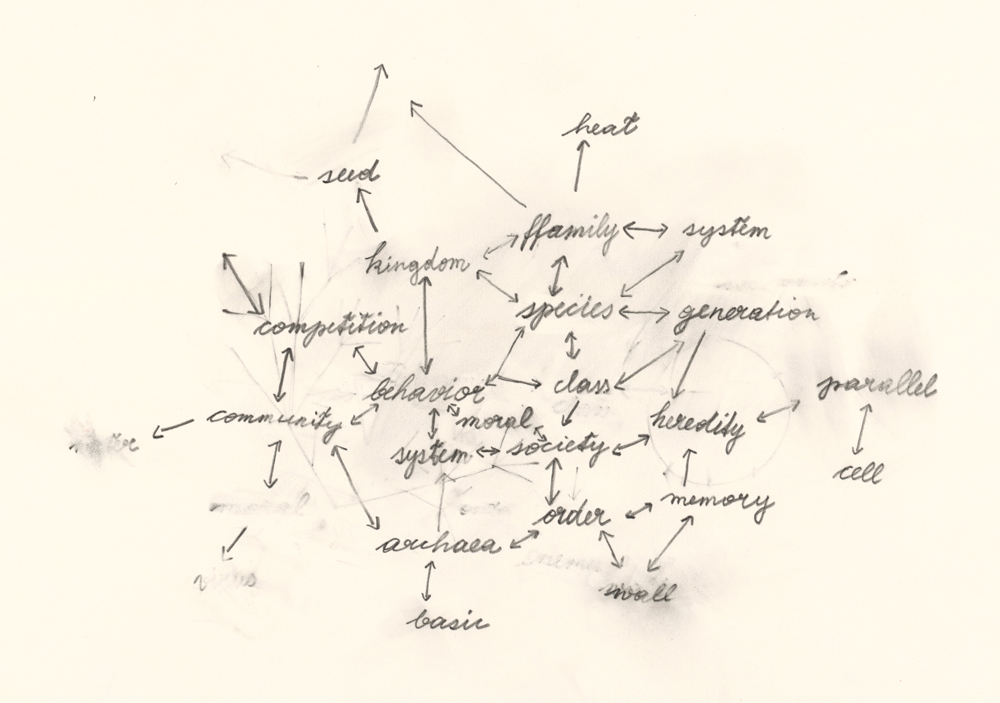 heat
seed
ffamily
system
kingdom
species
generation
competition
behavior
class
parallel
community
moral
heredity
system
society
cell
memory
order
archaea
wall
basic